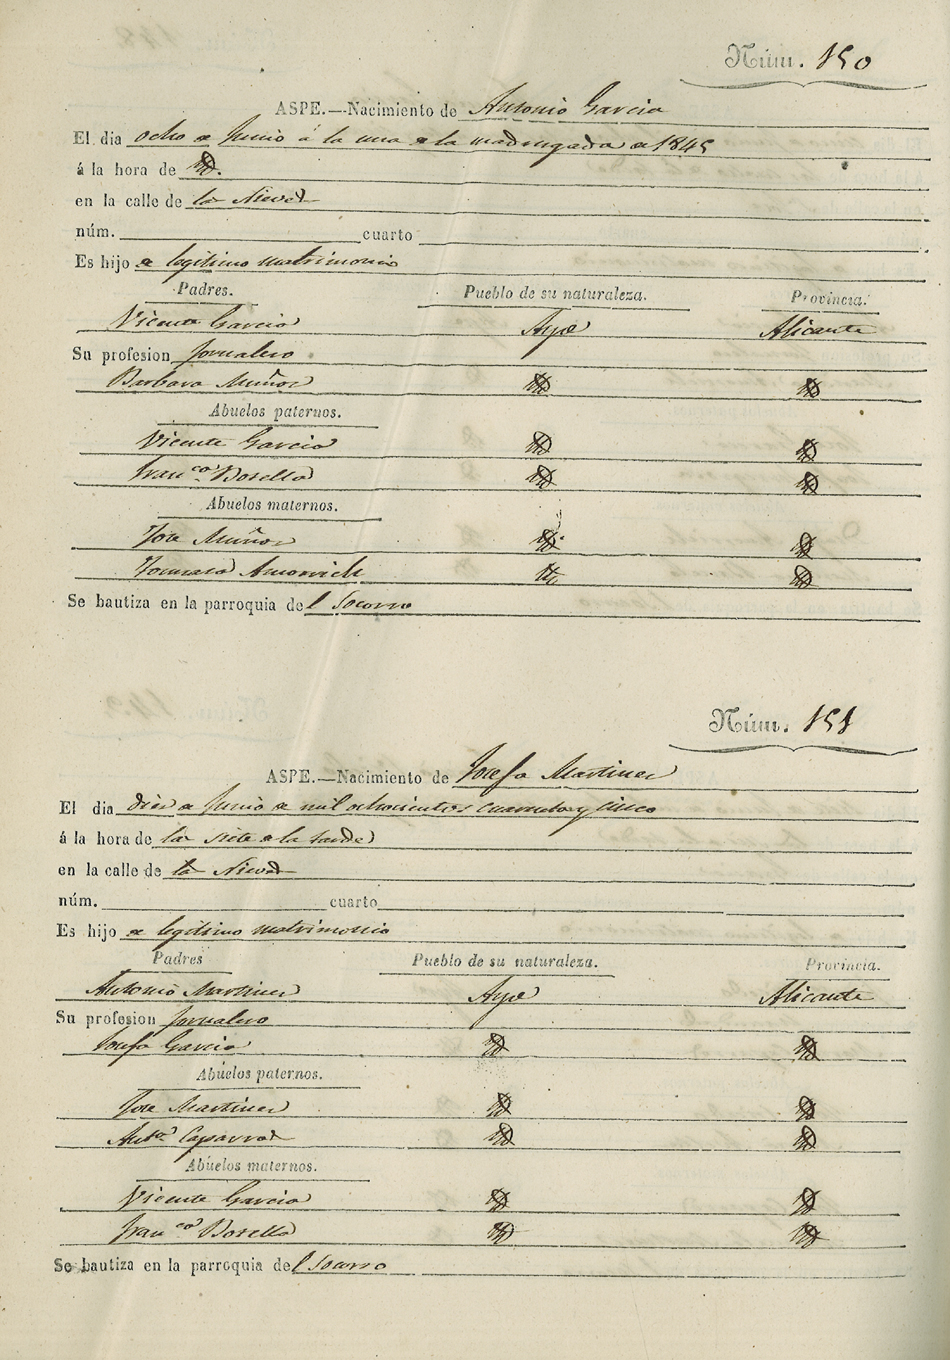 Núm. 150
ASPE.—Nacimiento de Antonio Garcia
El dia ocho de Junio á la una de la madrugada de 1845
á la hora de id.
en la calle de la Nieve
núm. cuarto
Es hijo de legitimo matrimonio
Padres. Pueblo de su naturaleza. Provincia.
Vicente Garcia Aspe Alicante
Su profesion Jornalero
Barbara Muñoz id id
Abuelos paternos.
Vicente Garcia id id
Fran.ca Botella id id
Abuelos maternos.
Jose Muñoz id id
Tomasa id id
Se bautiza en la parroquia del Socorro
Núm. 151
ASPE.—Nacimiento de Josefa Martinez
El dia diez de Junio de mil ochocientos cuarenta y cinco
á la hora de las siete de la tarde
en la calle de la Nieve
núm. cuarto
Es hijo de legitimo matrimonio
Padres Pueblo de su naturaleza. Provincia.
Antonio Martinez Aspe Alicante
Su profesion Jornalero
Josefa Garcia id id
Abuelos paternos.
Jose Martinez id id
Ant.a Caparros id id
Abuelos maternos.
Vicente Garcia id id
Fran.ca Botella id id
Se bautiza en la parroquia del Socorro